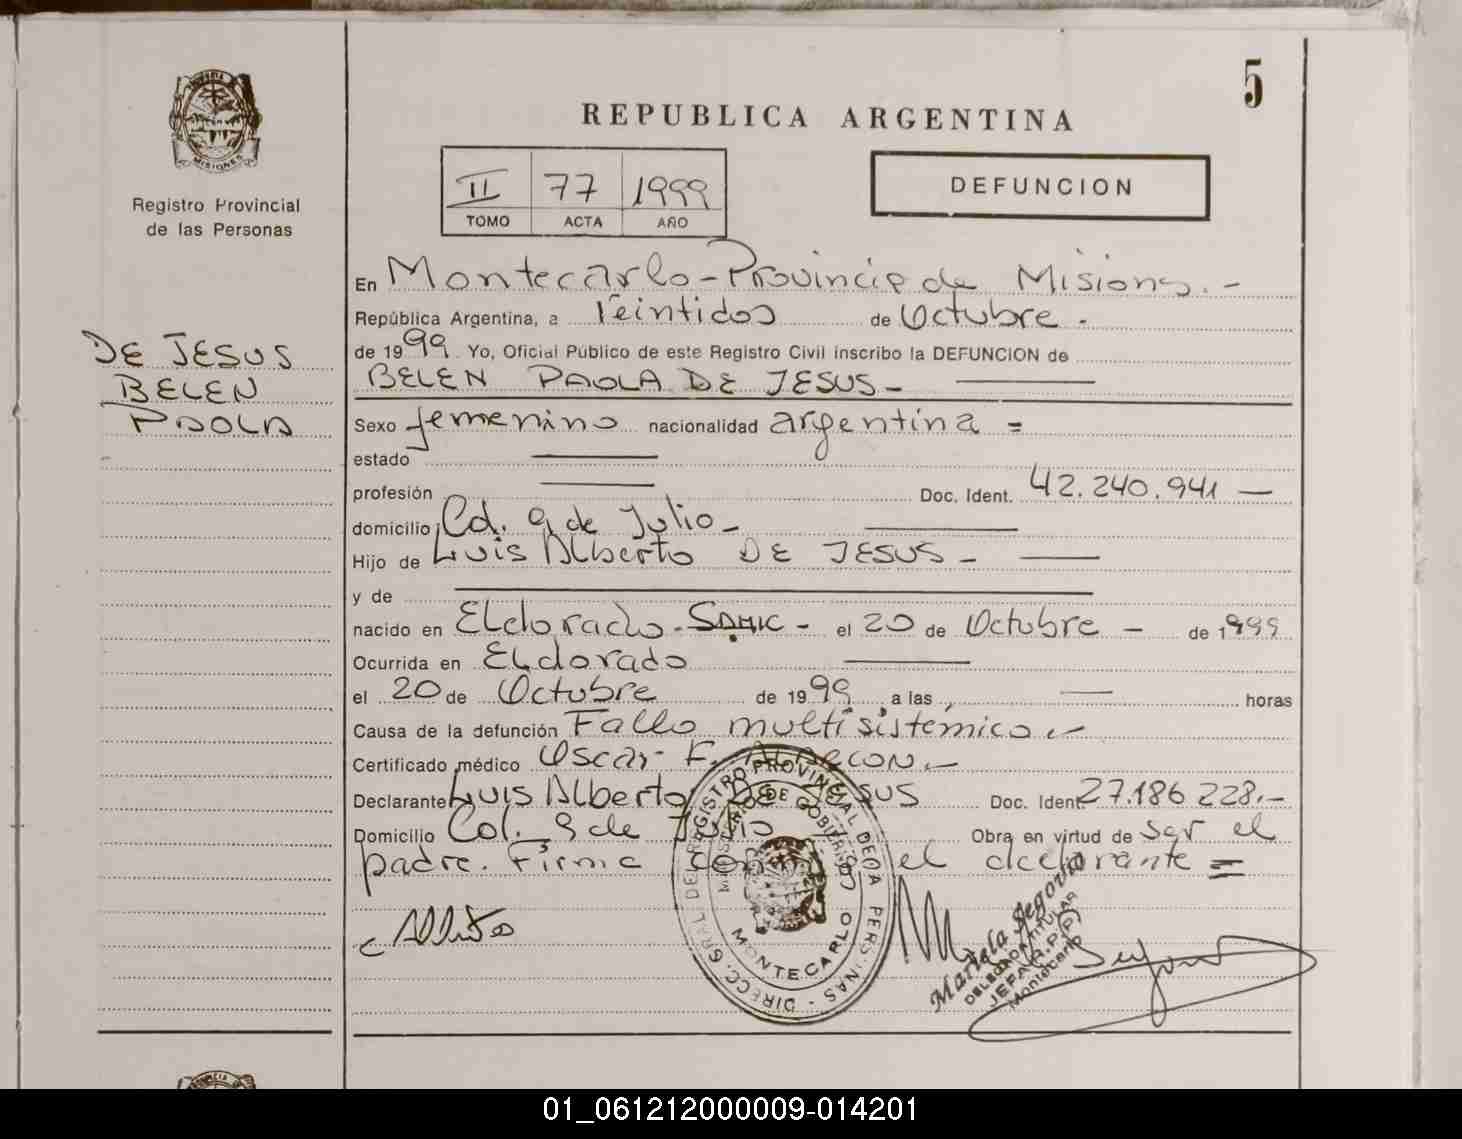 5
PROVINCIA DE
MISIONES
Registro Provincial
de las Personas
DE JESUS
BELEN
PAOLA
REPUBLICA ARGENTINA
II 77 1999
TOMO ACTA AÑO
DEFUNCION
En Montecarlo - Provincia de Misiones. -
República Argentina, a Veintidos de Octubre.
de 1999. Yo, Oficial Público de este Registro Civil inscribo la DEFUNCION de
BELEN PAOLA DE JESUS -
Sexo femenino nacionalidad argentina =
estado
profesión Doc. Ident. 42.240.941 —
domicilio Col. 9 de Julio -
Hijo de Luis Alberto DE JESUS -
y de
nacido en Eldorado - SAMIC - el 20 de Octubre - de 1999
Ocurrida en Eldorado
el 20 de Octubre de 1999 a las — horas
Causa de la defunción Fallo multisistémico. -
Certificado médico Oscar F. ALARCON. -
Declarante Luis Alberto DE JESUS Doc. Ident. 27.186 228. -
Domicilio Col. 9 de Julio Obra en virtud de ser el
padre. Firma conmigo el declarante =
DIRECC. GRAL DEL REGISTRO PROVINCIAL DE LA PERSONAS -
MINISTERIO DE GOBIERNO
MONTECARLO
Mariela Segovia
DELEGADA TITULAR
JEFA (R.P.P)
Montecarlo
01_061212000009-014201